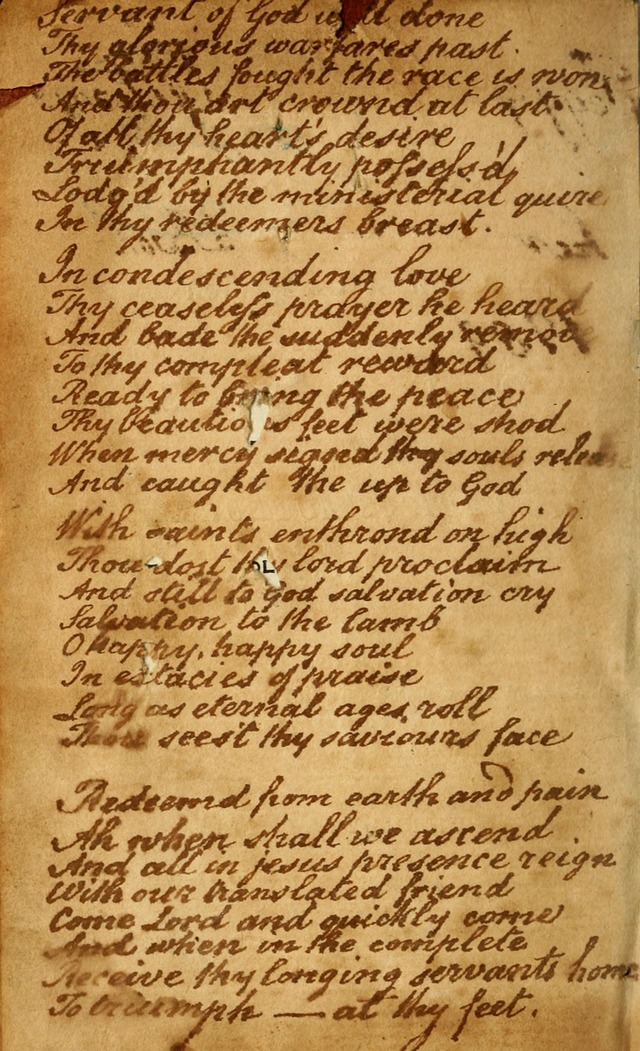 Servant of God well done
Thy glorious warfares past
The battles fought the race is won
And thou art crownd at last
Of all thy heart's desire
Triumphantly possess'd,
Lodg'd by the ministerial quire
In thy redeemers breast.
In condescending love
Thy ceaseless prayer he heard
And bade the suddenly remove
To thy compleat reward
Ready to bring the peace
Thy beautious feet were shod
When mercy signd thy souls relea
And caught the up to God
With saints enthrond on high
Thou dost thy lord proclaim
And still to god salvation cry
Salvation to the lamb
O happy, happy soul
In extacies of praise
Long as eternal ages roll
Thou seest thy saviours face
Redeemd from earth and pain
Ah when shall we ascend
And all in jesus presence reign
With our translated friend
Come Lord and quickly come
And when in the complete
Receive thy longing servants home
To triumph — at thy feet.